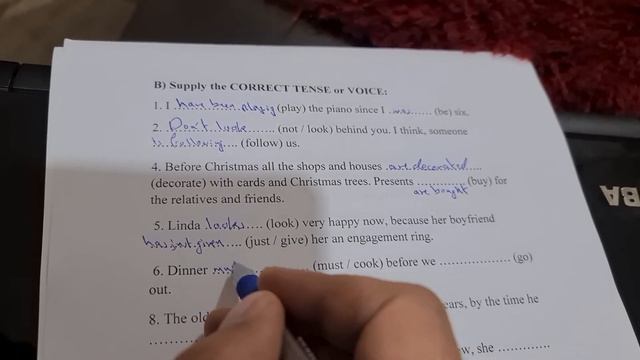 B) Supply the CORRECT TENSE or VOICE:
1. I have been playing (play) the piano since I was...... (be) six.
2. Don't look....... (not / look) behind you. I think, someone
is following.... (follow) us.
4. Before Christmas all the shops and houses are decorated....
(decorate) with cards and Christmas trees. Presents ............. (buy) for
are bought
the relatives and friends.
5. Linda looks.... (look) very happy now, because her boyfriend
has just given.... (just / give) her an engagement ring.
6. Dinner (must / cook) before we ............. (go)
out.
8. The old ears, by the time he
w, she .............
VBA